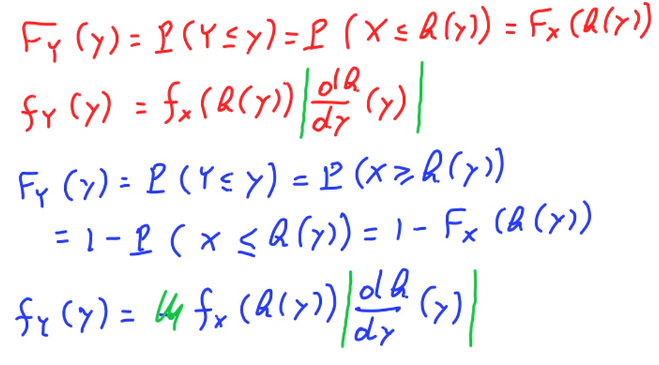 F_Y (y) = P(Y ≤ y) = P (X ≤ h(y)) = F_X (h(y))
f_Y (y) = f_X (h(y)) |dh/dy (y)|
F_Y (y) = P (Y ≤ y) = P (X ≥ h(y))
= 1 - P (X ≤ h(y)) = 1 - F_X (h(y))
f_Y (y) = f_X (h(y)) |dh/dy (y)|